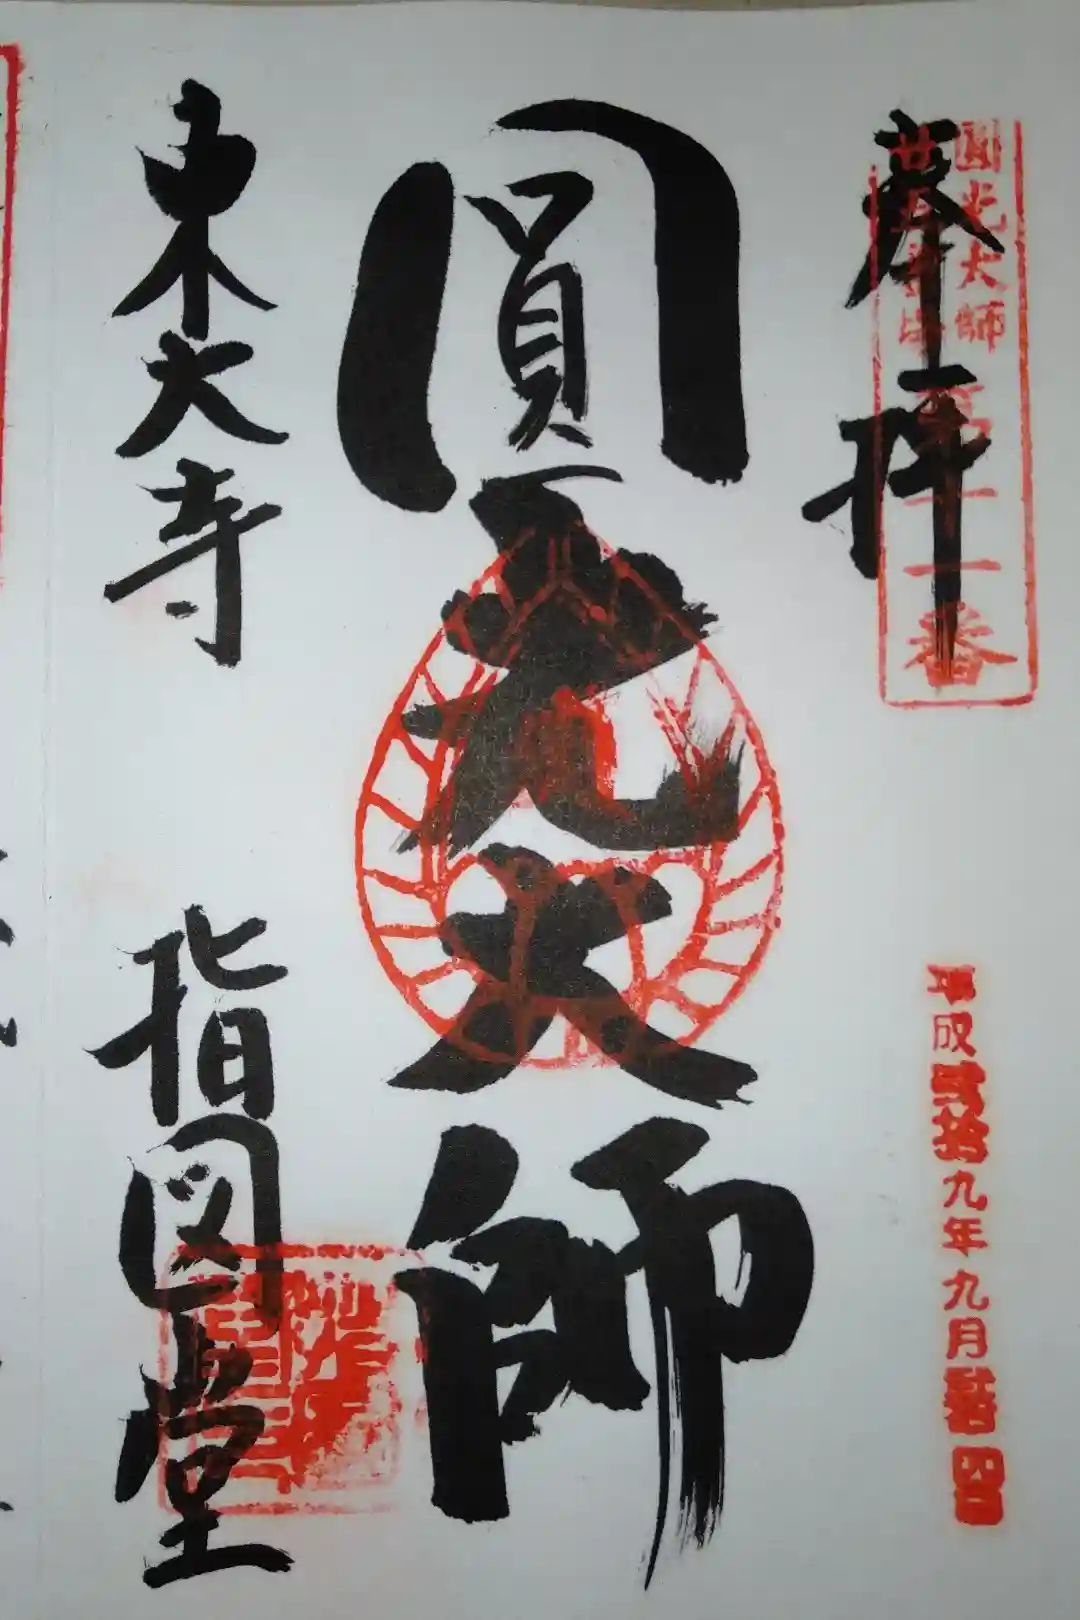 奉拝
圓光大師
廿五霊場
第十一番
平成貳拾九年九月
圓光大師
東大寺
指図堂